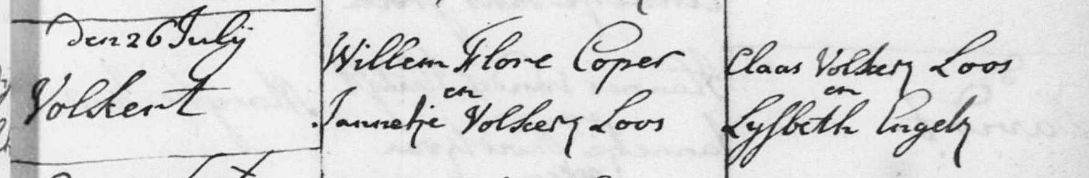 den 26 Julij
Volkert
Willem Flore Coper
en
Jannetje Volkerz Loos
Claas Volkerz Loos
en
Lysbeth Engelz